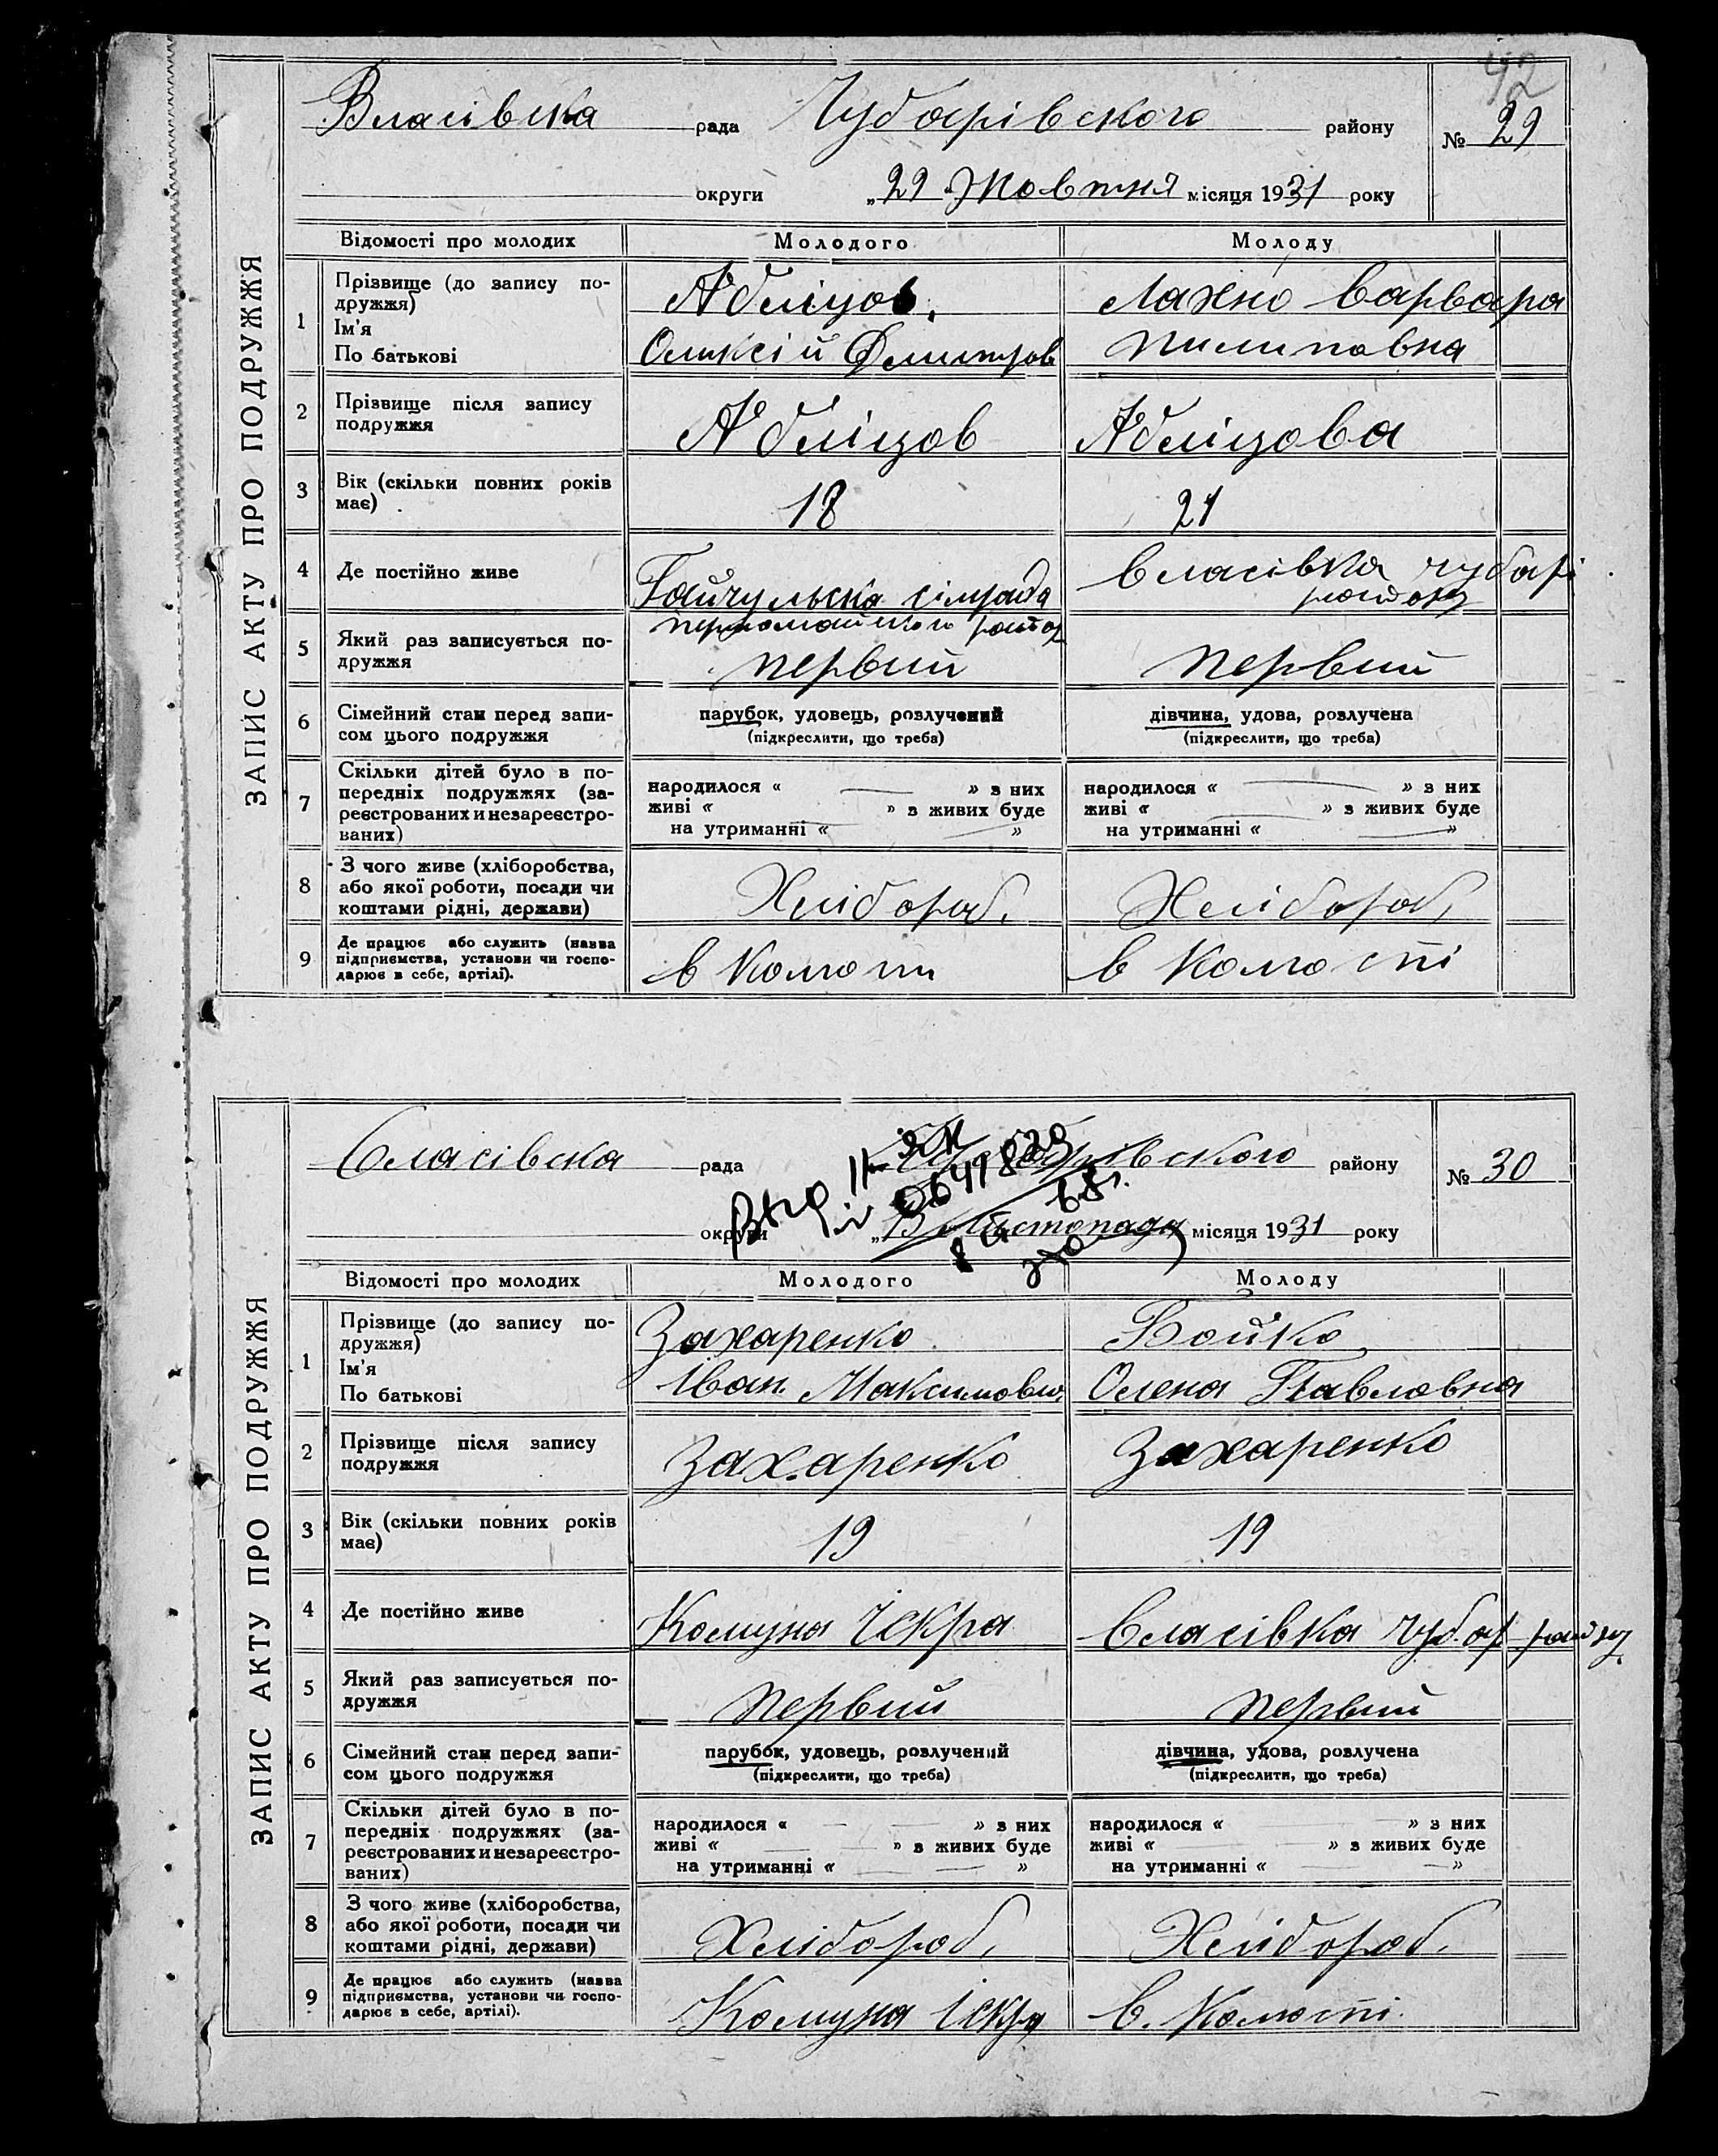 42
Власівска рада Чубарівского району № 29
округи „29 Жовтня місяця 1931 року
ЗАПИС АКТУ ПРО ПОДРУЖЖЯ
Відомості про молодих Молодого Молоду
1 Прізвище (до запису по-
дружжя)
Ім'я
По батькові
Абліцов. Лахно Варвара
Оликсій Дмитров Пилиповна
2 Прізвище після запису
подружжя
Абліцов Абліцова
3 Вік (скільки повних років
має)
18 21
4 Де постійно живе
Гайчульска сілрада Власівка Чубарі
району
5 Який раз записується по-
дружжя
первий первий
6 Сімейний стан перед запи-
сом цього подружжя
парубок, удовець, розлучений дівчина, удова, розлучена
(підкреслити, що треба) (підкреслити, що треба)
7 Скільки дітей було в по-
передніх подружжях (за-
реєстрованих и незареєстро-
ваних)
народилося « — » з них народилося « — » з них
живі « » з живих буде живі « » з живих буде
на утриманні « — » на утриманні « — »
8 З чого живе (хліборобства,
або якої роботи, посади чи
коштами рідні, держави)
Хлібороб. Хлібороб,
9 Де працює або служить (назва
підприємства, установи чи госпо-
дарює в себе, артілі).
в
в
Власівска рада району № 30
округи Листопада місяця 1931 року
ЗАПИС АКТУ ПРО ПОДРУЖЖЯ
Відомості про молодих Молодого Молоду
1 Прізвище (до запису по-
дружжя)
Ім'я
По батькові
Захаренко Бойко
Іван Максимович Олена Павловна
2 Прізвище після запису
подружжя
Захаренко Захаренко
3 Вік (скільки повних років
має)
19 19
4 Де постійно живе
Комуна Іскра Власівка Чубар району
5 Який раз записується по-
дружжя
первий первий
6 Сімейний стан перед запи-
сом цього подружжя
парубок, удовець, розлучений дівчина, удова, розлучена
(підкреслити, що треба) (підкреслити, що треба)
7 Скільки дітей було в по-
передніх подружжях (за-
реєстрованих и незареєстро-
ваних)
народилося « — » з них народилося « — » з них
живі « — » з живих буде живі « — » з живих буде
на утриманні « — » на утриманні « — »
8 З чого живе (хліборобства,
або якої роботи, посади чи
коштами рідні, держави)
Хлібороб. Хлібороб.
9 Де працює або служить (назва
підприємства, установи чи госпо-
дарює в себе, артілі).
Комуна Іскра в.